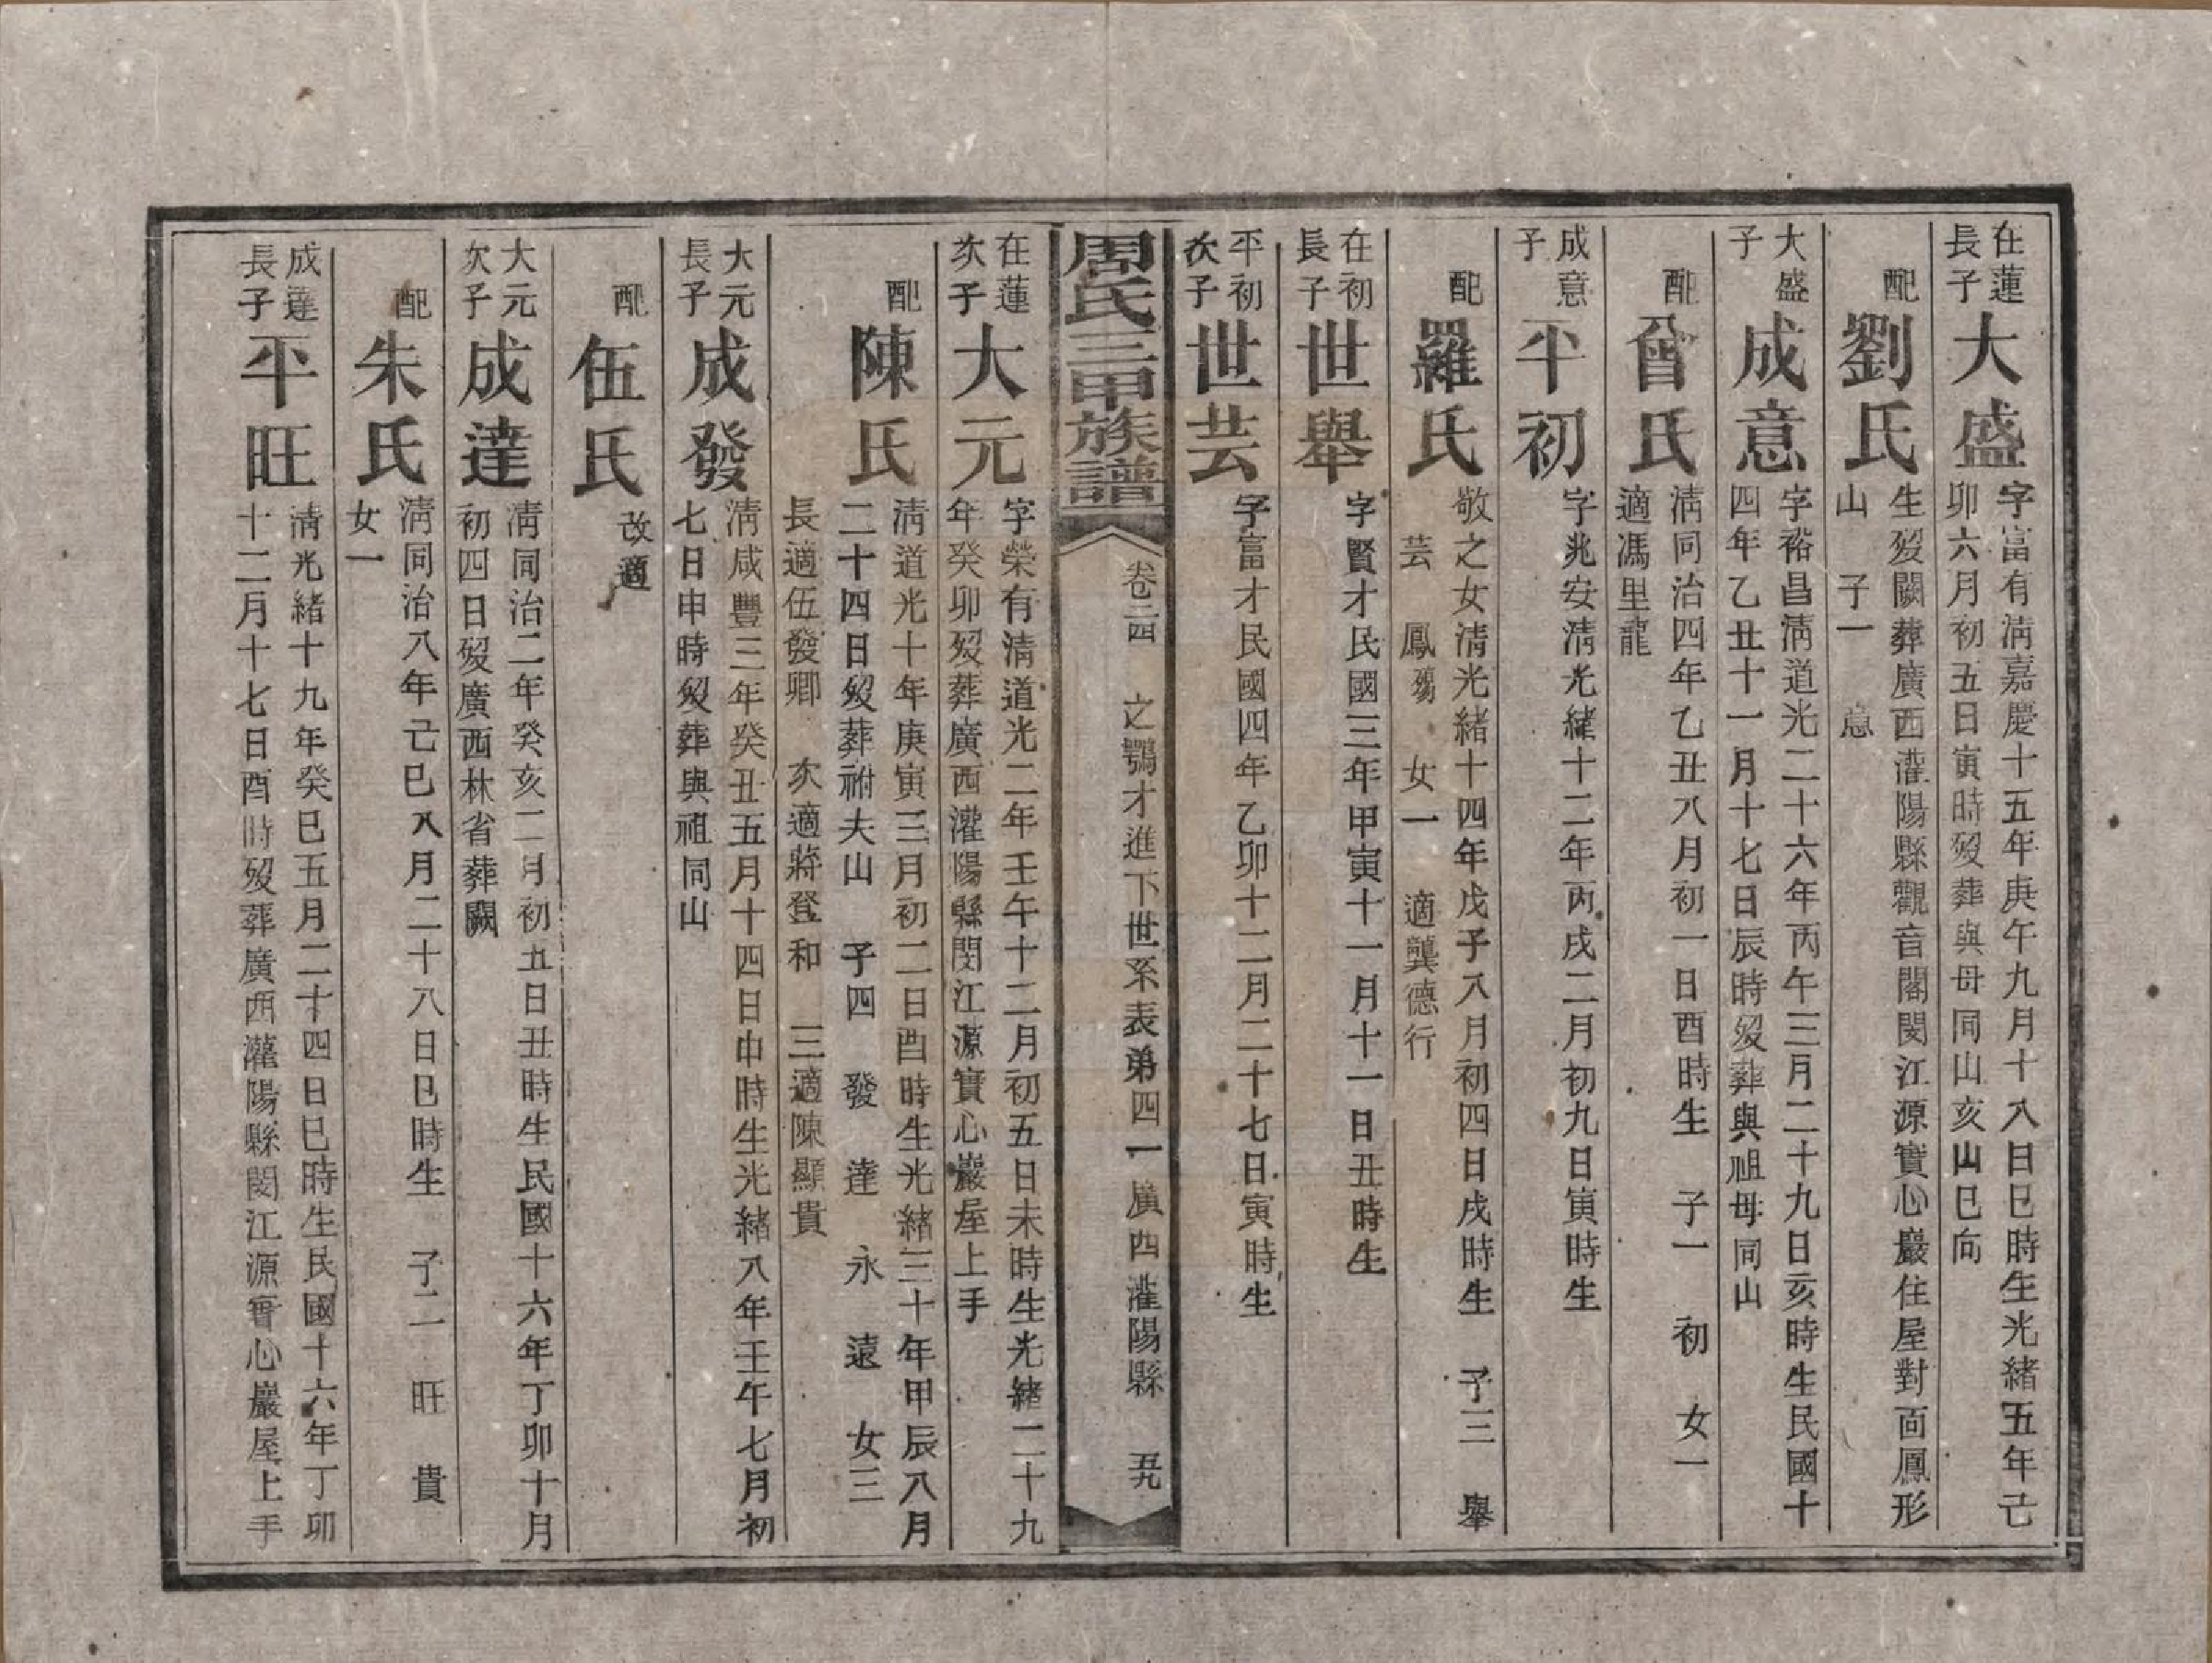 在蓮長子
大盛
字富有淸嘉慶十五年庚午九月十八日巳時生光緒五年己
卯六月初五日寅時歿葬與母同山亥山巳向
配
劉氏
生歿闕葬廣西灌陽縣觀音閣閔江源實心巖住屋對面鳳形
山 子一 意
大盛子
成意
字裕昌淸道光二十六年丙午三月二十九日亥時生民國十
四年乙丑十一月十七日辰時歿葬與祖母同山
配
曾氏
淸同治四年乙丑八月初一日酉時生 子一 初 女一
適馮里龍
成意子
平初
字兆安淸光緒十二年丙戌二月初九日寅時生
配
羅氏
敬之女淸光緒十四年戊子八月初四日戌時生 子三 舉
芸 鳳殤 女一 適龔德行
在初長子
世舉
字賢才民國三年甲寅十一月十一日丑時生
平初次子
世芸
字富才民國四年乙卯十二月二十七日寅時生
周氏三甲族譜
卷二四 之鶚才進下世系表弟四一廣四灌陽縣 五九
在蓮次子
大元
字榮有淸道光二年壬午十二月初五日未時生光緒二十九
年癸卯歿葬廣西灌陽縣閔江源實心巖屋上手
配
陳氏
淸道光十年庚寅三月初二日酉時生光緒三十年甲辰八月
二十四日歿葬祔夫山 子四 發 達 永 遠 女三
長適伍發卿 次適蔣登和 三適陳顯貴
大元長子
成發
淸咸豐三年癸丑五月十四日申時生光緒八年壬午七月初
七日申時歿葬與祖同山
配
伍氏
改適
大元次子
成達
淸同治二年癸亥二月初五日丑時生民國十六年丁卯十月
初四日歿廣西林省葬闕
配
朱氏
淸同治八年己巳八月二十八日巳時生 子二 旺 貴
女一
成達長子
平旺
淸光緒十九年癸巳五月二十四日巳時生民國十六年丁卯
十二月十七日酉時歿葬廣西灌陽縣閔江源實心巖屋上手